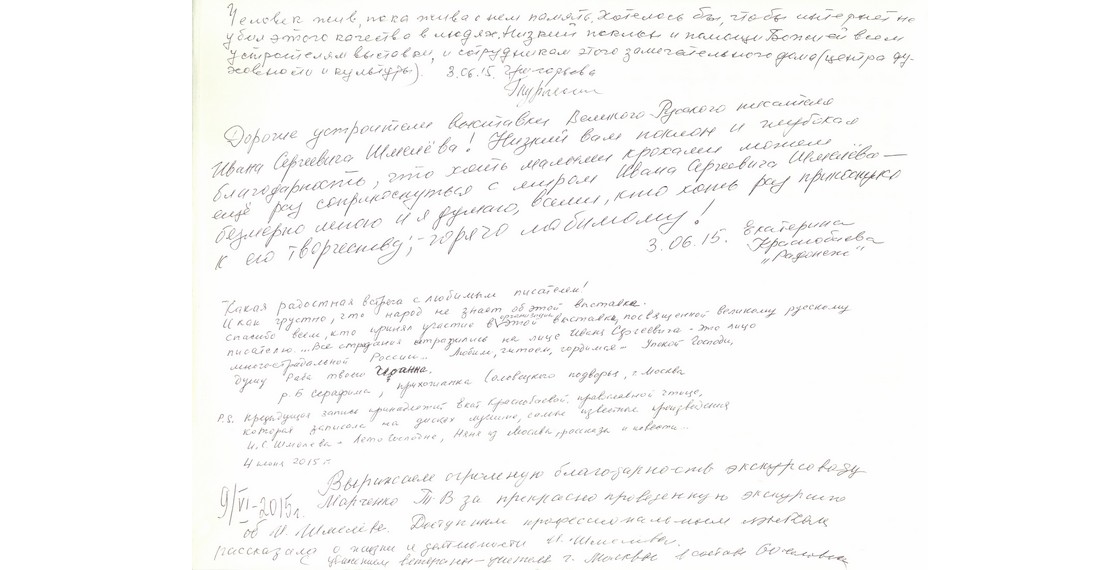 Человек жив, пока жива о нем память. Хотелось бы, чтобы интернет не
убил этого качества в людях. Низкий поклон и помощи Божией всем
устроителям выставки, и сотрудникам этого замечательного дома (центра ду-
ховности и культуры). 3.06.15. Григорьева
Дорогие устроители Выставки Великого Русского писателя
Ивана Сергеевича Шмелёва! Низкий вам поклон и глубокая
благодарность, что хоть малыми крохами можем
ещё раз соприкоснуться с миром Ивана Сергеевича Шмелёва —
безмерно мною и я думаю, всеми, кто хоть раз прикоснулся
к его творчеству; - горячо любимому!
3.06.15. Екатерина
Краснобаева
"Радонеж"
Какая радостная встреча с любимым писателем!
И как грустно, что народ не знает об этой выставке.
организации
Спасибо всем, кто принял участие в этой выставке, посвященной великому русскому
писателю... Все страдания отразились на лице Ивана Сергеевича - это лицо
многострадальной России.. Любим, читаем, гордимся - Упокой Господи,
душу Раба твоего Иоанна.
р. Б. Серафима, прихожанка Соловецкого подворья, г. Москва
P.S. Предыдущая запись принадлежит Екат Краснобаевой, православной чтице,
которая записала на дисках лучшие, самые известные произведения
И.С. Шмелева - Лето Господне, Няня из Москвы, рассказы и повести..
4 июня 2015 г.
9/VI-2015г. Выражаем огромную благодарность экскурсоводу
Марченко Т В за прекрасно проведенную экскурсию
об И. Шмелёве. Доступным профессиональным языком
рассказала о жизни и деятельности И. Шмелева.
С уважением ветераны - учителя г. Москвы в составе